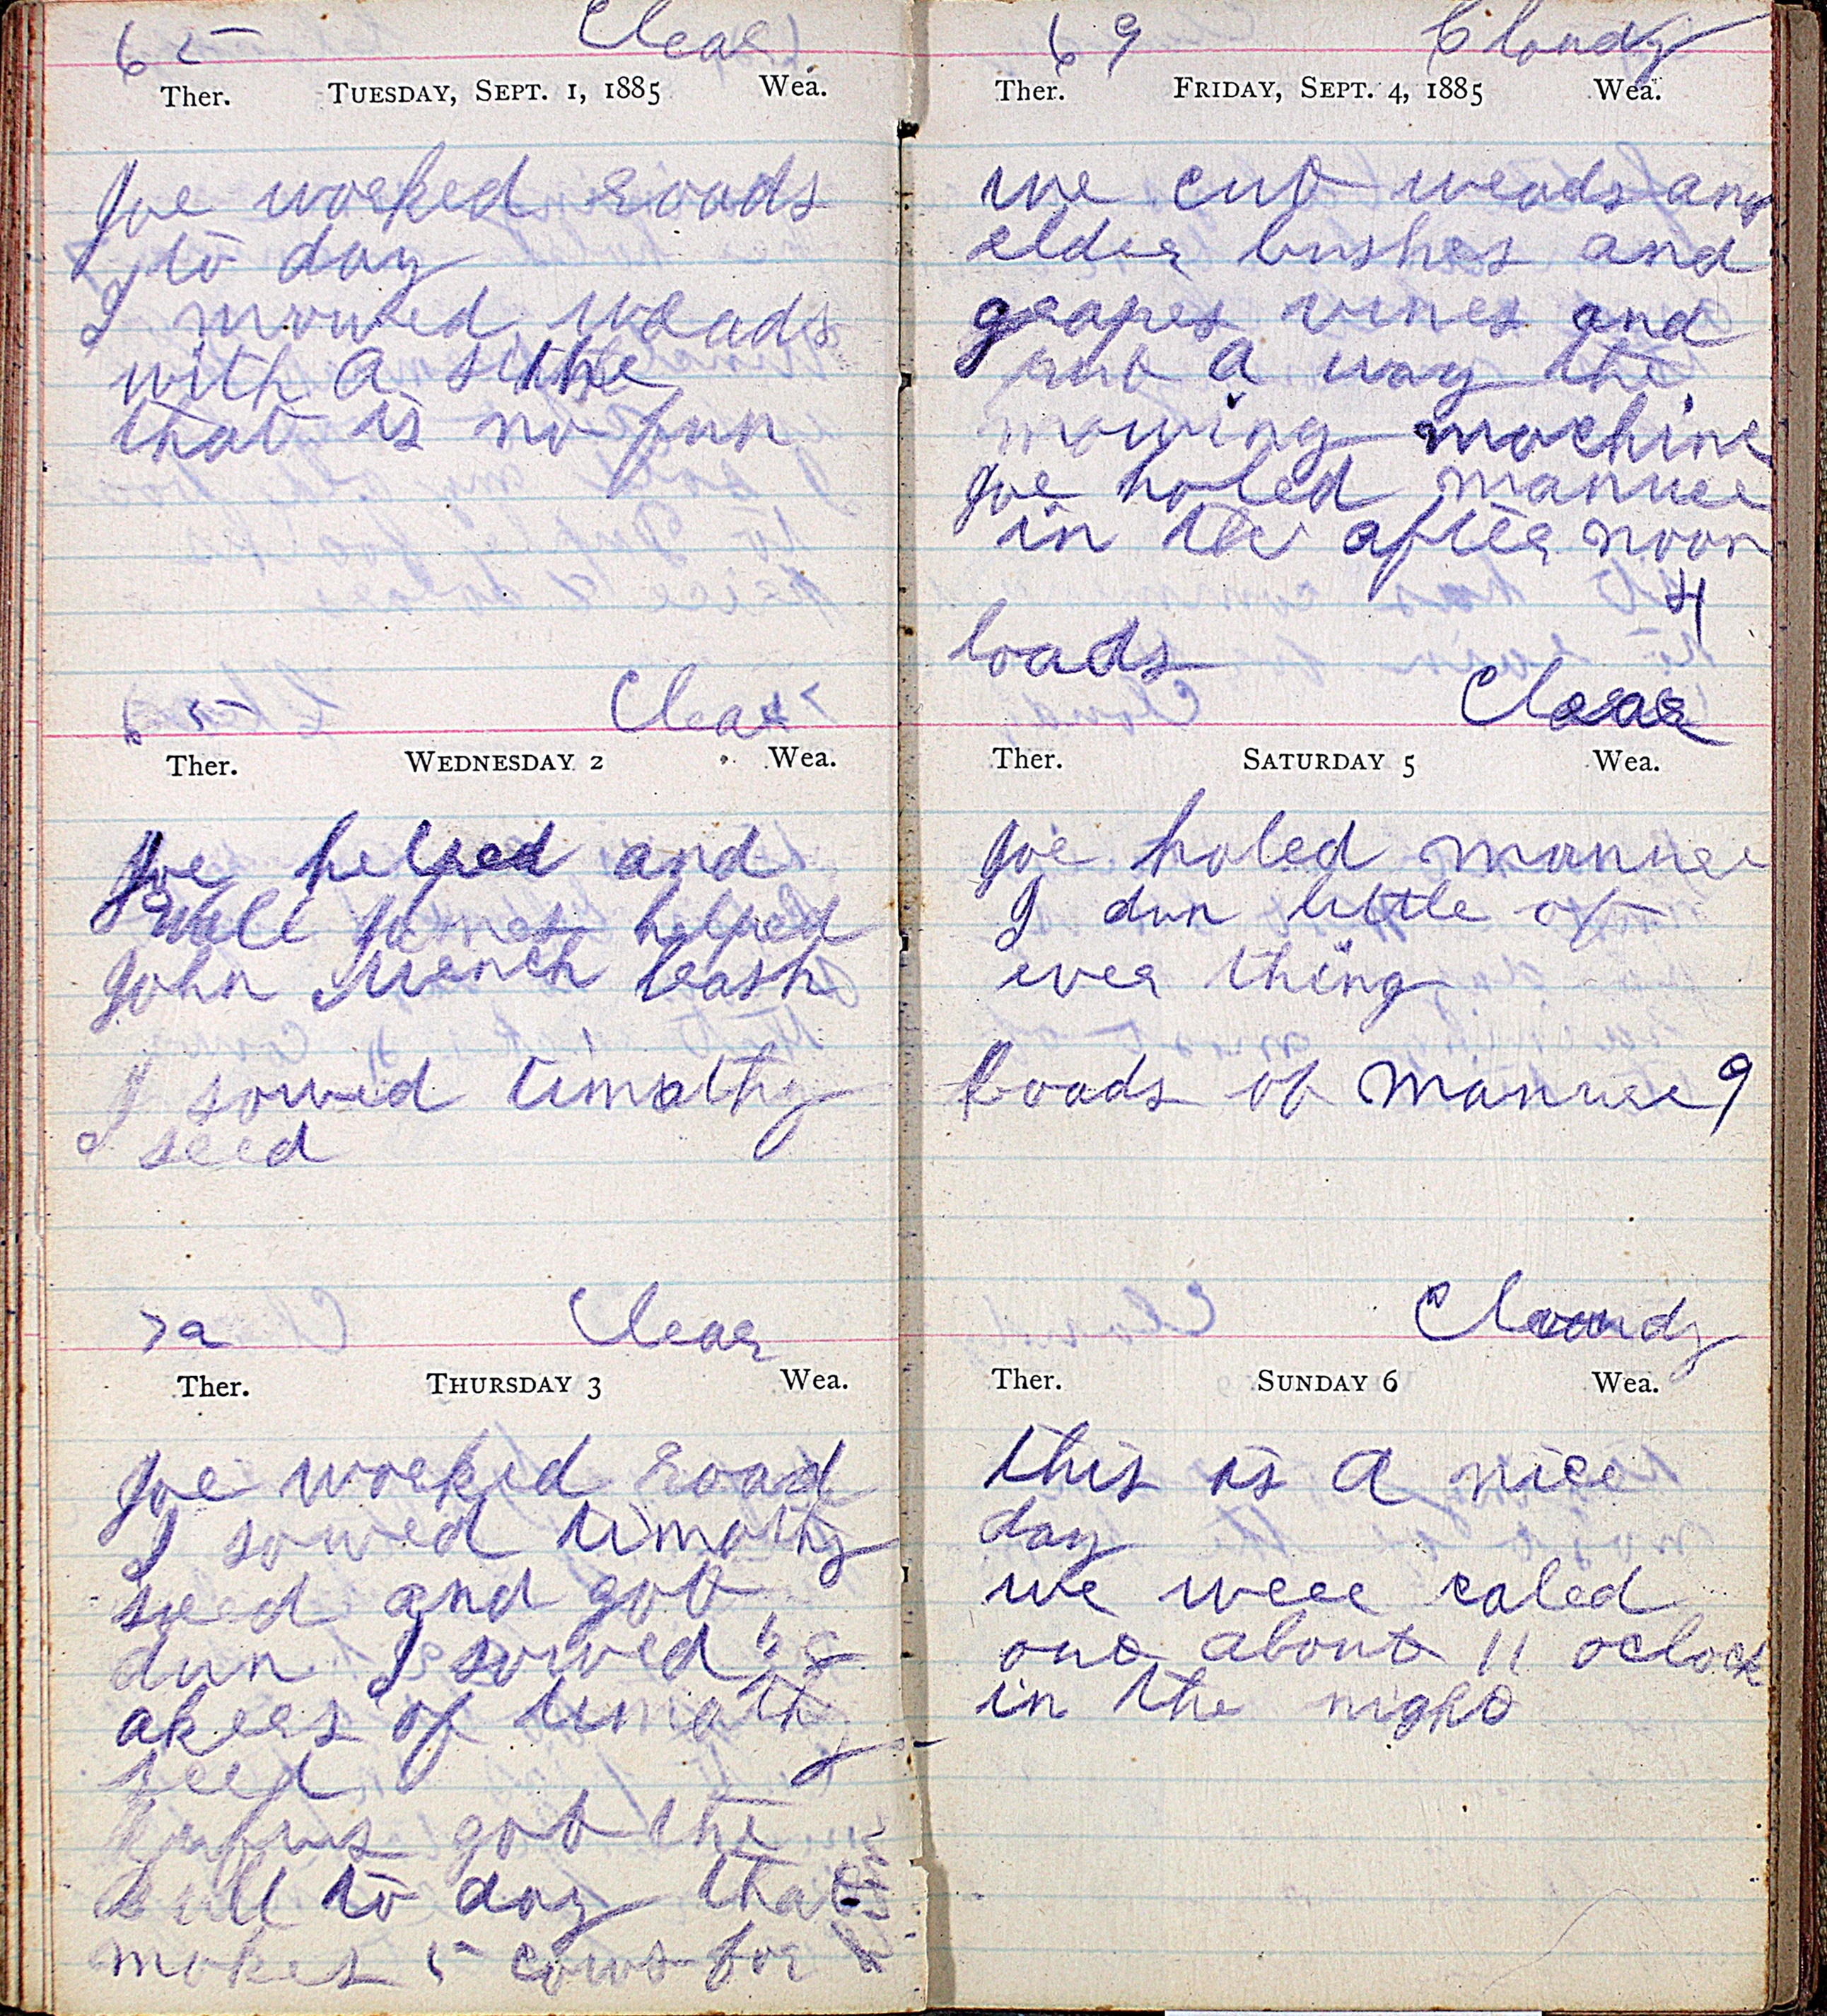 65 Clear
Ther. TUESDAY, SEPT. 1, 1885 Wea.
Joe worked roads
to day
I mowed weads
with a sithe
that is no fun
65 Clear
Ther. WEDNESDAY 2 Wea.
Joe helped and
Will James helped
John trash
I sowed timothy
seed
Clear
Ther. THURSDAY 3 Wea.
Joe worked road
I sowed timothy
seed and got
dun I sowed
akers of timothy
seed
Rufus got the
bull to day that
makes 5 cows for
69 Cloudy
Ther. FRIDAY, SEPT. 4, 1885 Wea.
we cut weads and
elder bushes and
grapes vines and
put a way the
mowing mochine
Joe holed manure
in the after noon
4
loads
Clear
Ther. SATURDAY 5 Wea.
Joe holed manure
I dun little of
ever thing
Loads of manure 9
Cloudy
Ther. SUNDAY 6 Wea.
this is a nice
day
we were caled
out about 11 oclock
in the night